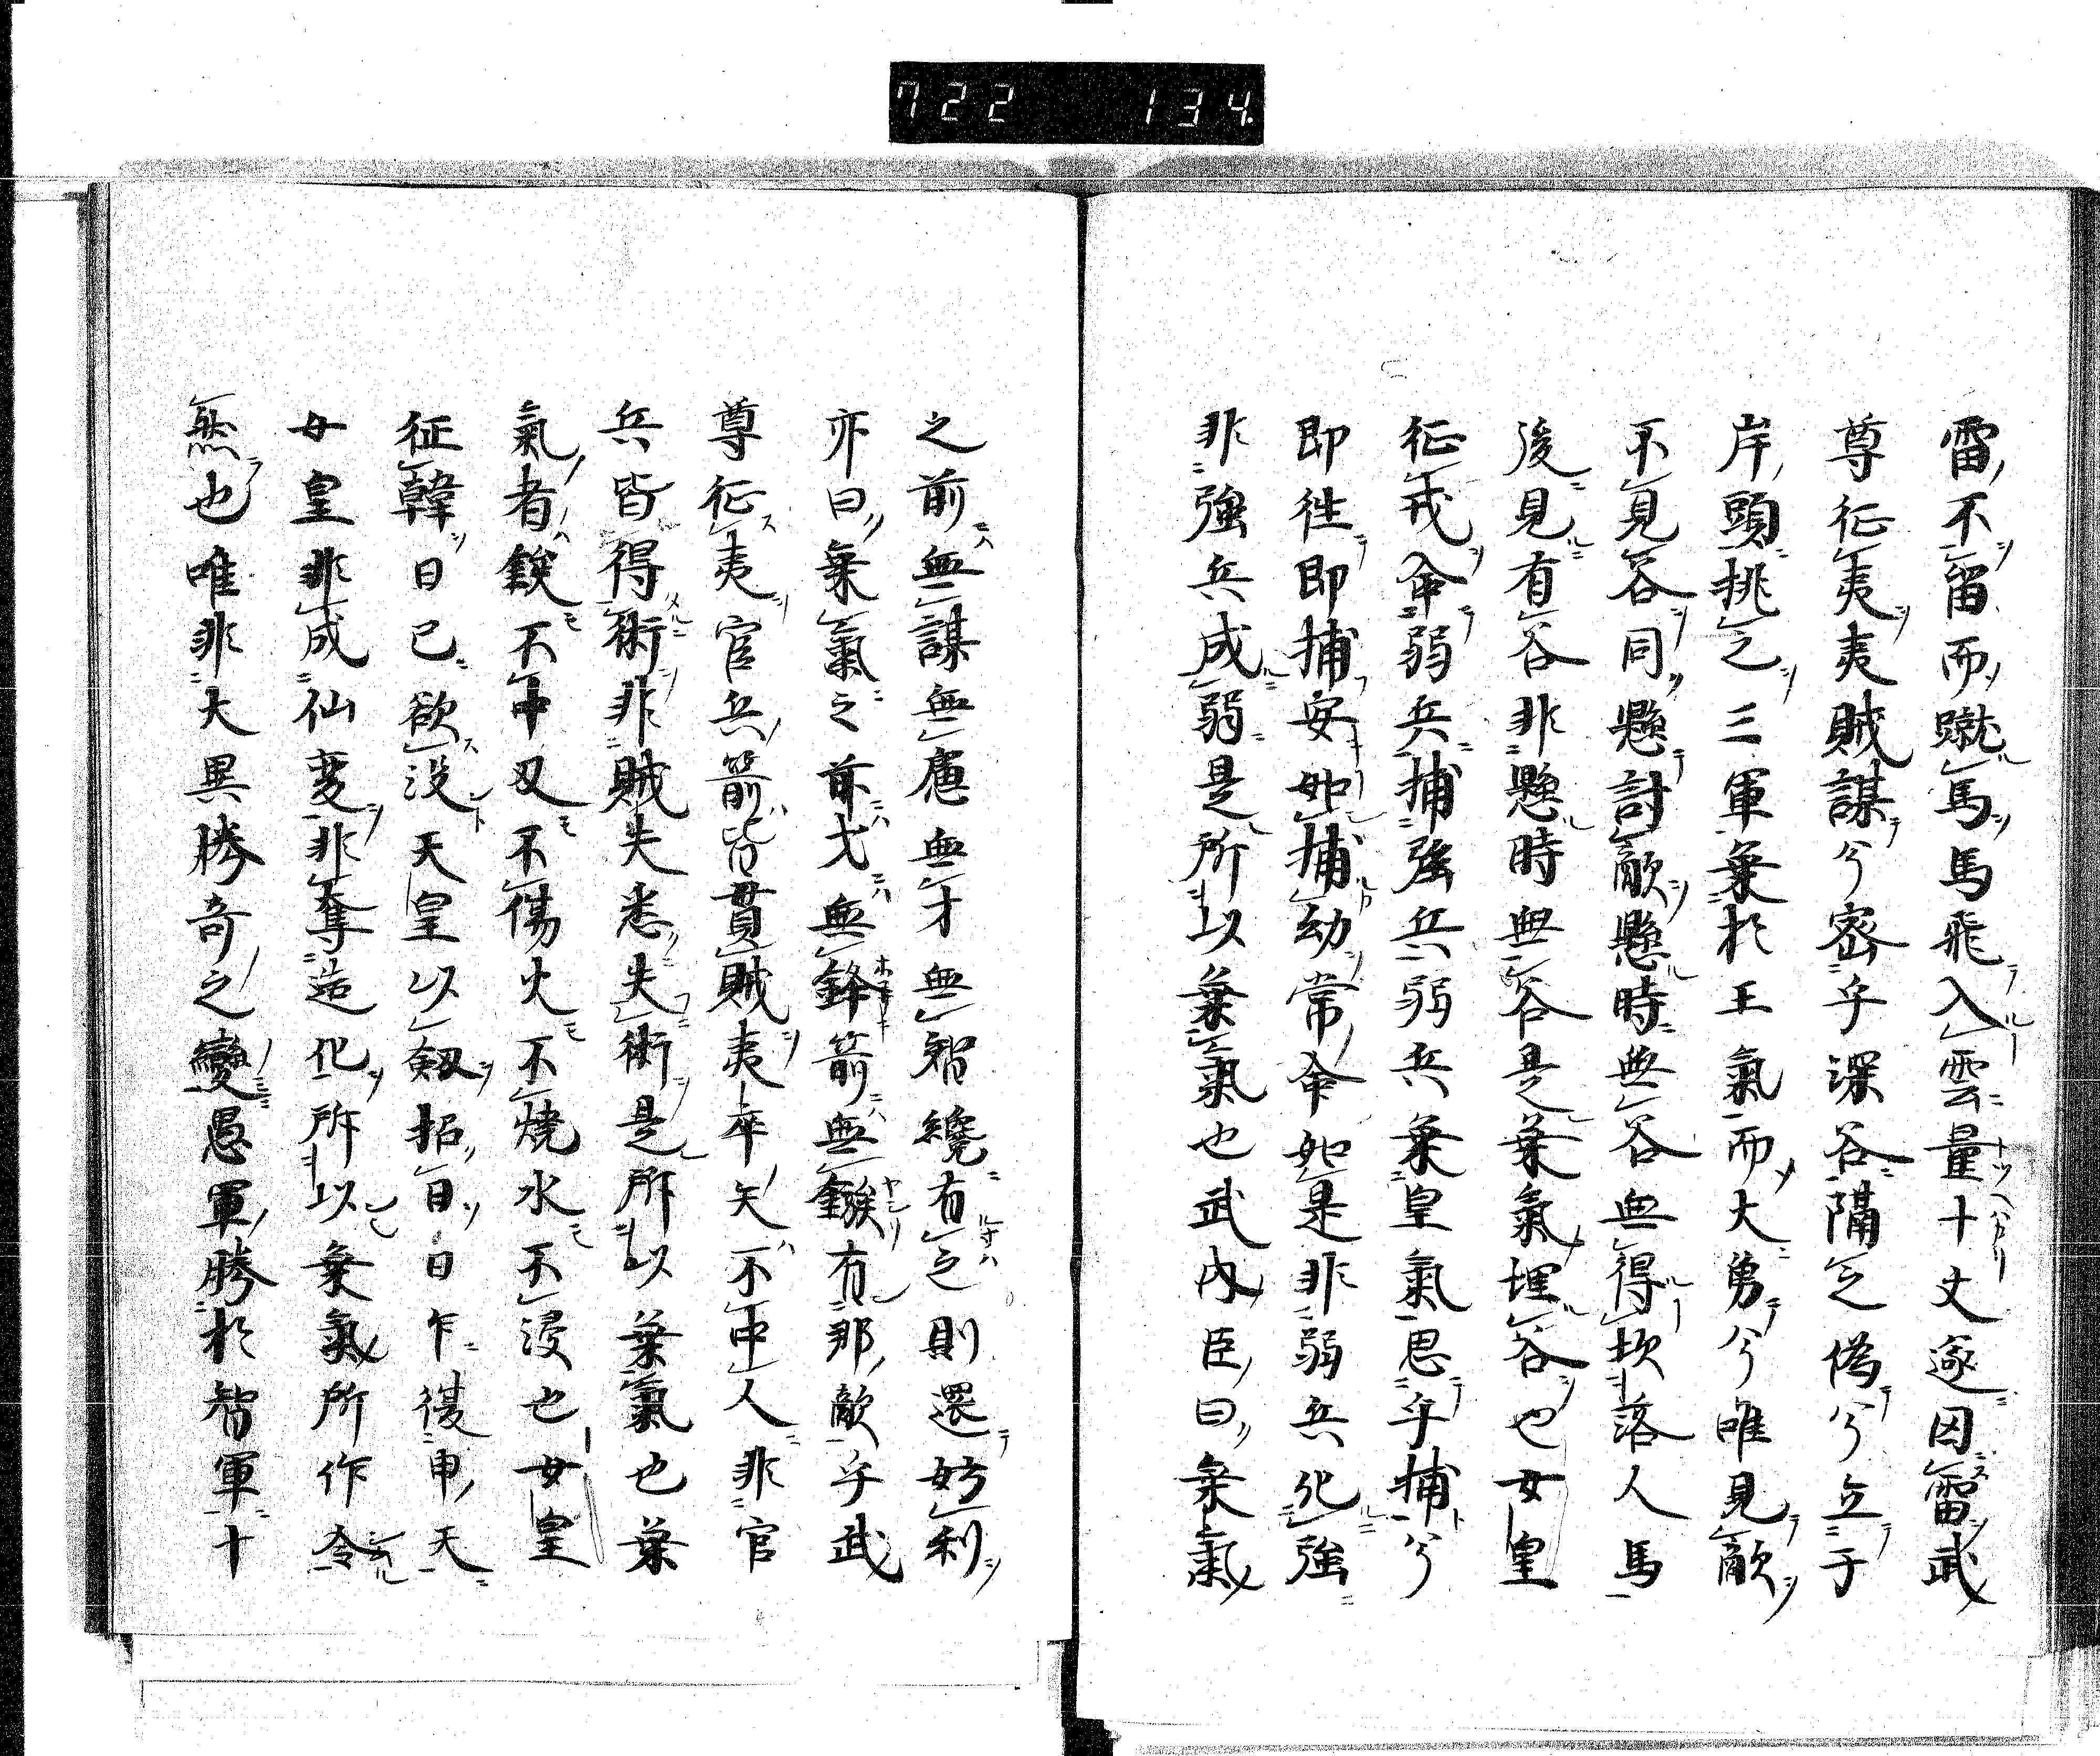 722 134
雷不留而蹴馬馬飛入雲量十丈逐因雷武
尊征夷夷賊謀兮密乎深谷隔之偽兮立于
岸頭挑之三軍乗於王氣而大勇兮唯見敵
不見谷同懸討敵懸時無谷無得坎落人馬
後見有谷非懸時無谷是乗氣埋谷也女皇
征戎命弱兵捕強兵弱兵乗皇氣思乎捕兮
即往即捕安如捕幼常命如是非弱兵化強
非強兵成弱是所以乗氣也武内臣曰乗氣
之前無謀無慮無才無智纔有之則還妨利
亦曰乗氣之前弋無鋒箭無鏃有那敵乎武
尊征夷官兵箭皆貫賊夷卒矢不中人非官
兵皆得術非賊失悉失術是所以乗氣也乗
氣者鋑不中刃不傷火不燒水不浸也女皇
征韓日已欲没天皇以劔招日日乍復申天
女皇非成仙変非奪造化所以乗氣所作令
然也唯非大異勝奇之變愚軍勝於智軍十